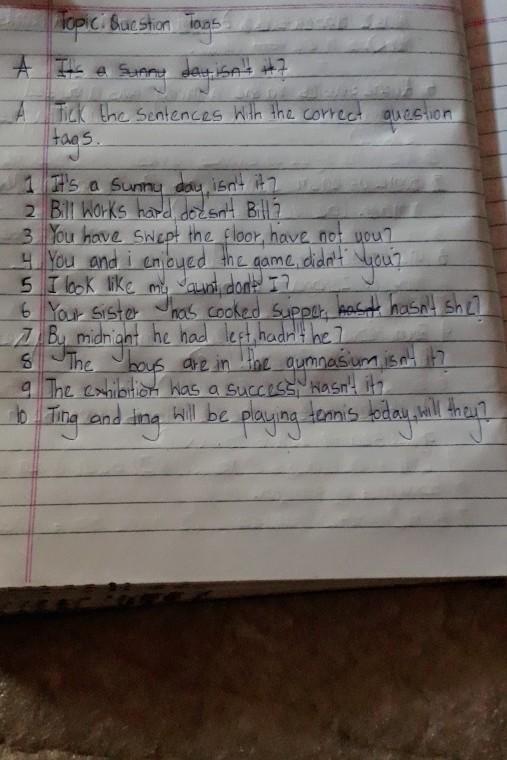 Topic: Question Tags
A It's a sunny day, isn't it?
A Tick the sentences with the correct question
tags.
1 It's a sunny day, isn't it?
2 Bill works hard, doesn't Bill?
3 You have swept the floor, have not you?
4 You and i enjoyed the game, didn't you?
5 I look like my aunt, don't I?
6 Your sister has cooked supper, hasn't hasn't she?
7 By midnight he had left, hadn't he?
8 The boys are in the gymnasium, isn't it?
9 The exhibition was a success, wasn't it?
10 Ting and ting will be playing tennis today, will they?